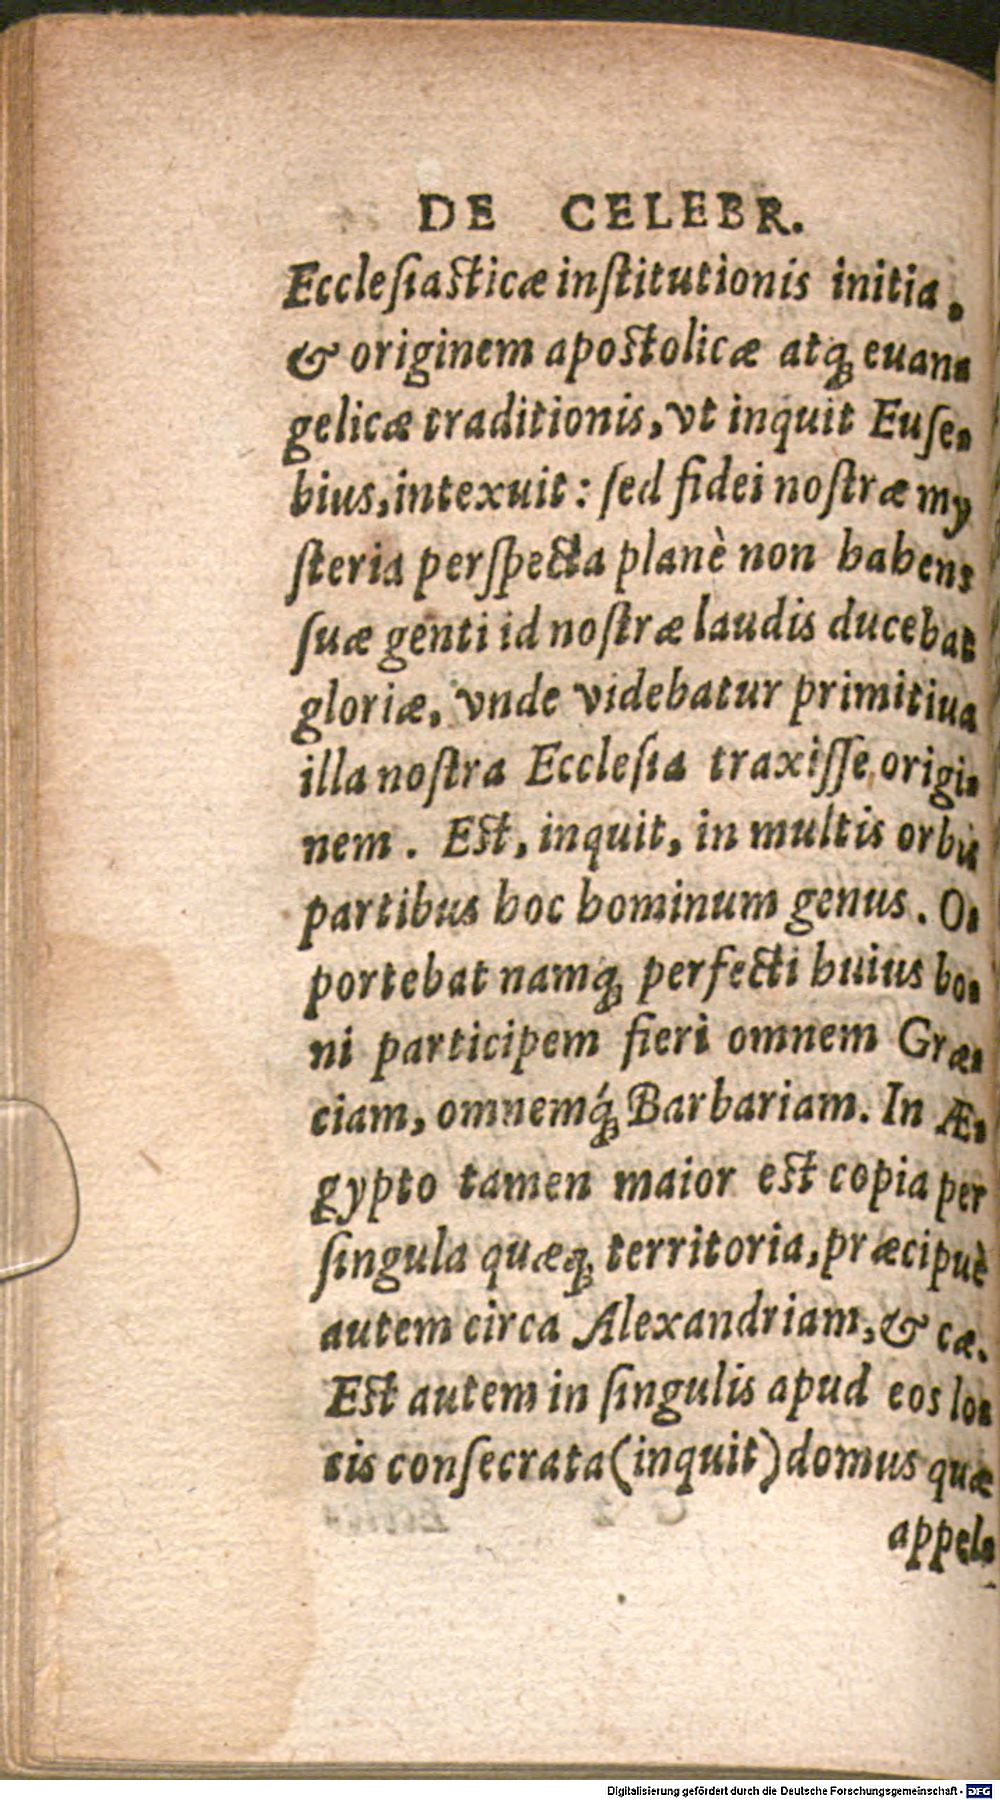 DE CELEBR.
Eccleſiaſticæ inſtitutionis initia,
& originem apoſtolicæ atq́; euan-
gelicæ traditionis, vt inquit Euſe-
bius, intexuit: ſed fidei noſtræ my
ſteria perſpecta planè non habens
ſuæ genti id noſtræ laudis ducebat
gloriæ, vnde videbatur primitiua
illa noſtra Eccleſia traxiſſe origi-
nem. Eſt, inquit, in multis orbis
partibus hoc hominum genus. O-
portebat namq; perfecti huius bo-
ni participem fieri omnem Græ-
ciam, omnemq́; Barbariam. In Æ-
gypto tamen maior eſt copia per
ſingula quæq; territoria, præcipuè
autem circa Alexandriam, & cæ.
Eſt autem in ſingulis apud eos lo-
cis conſecrata (inquit) domus quæ
appel-
Digitalisierung gefördert durch die Deutsche Forschungsgemeinschaft - DFG